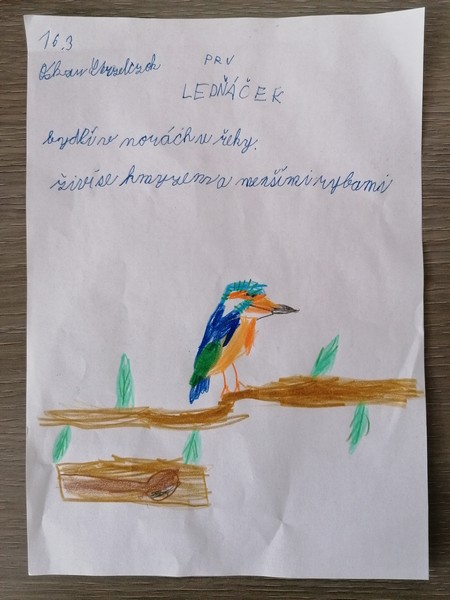 16.3
PRV
LEDŇÁČEK
bydlí v norách u řeky.
živí se hmyzem a menšími rybami